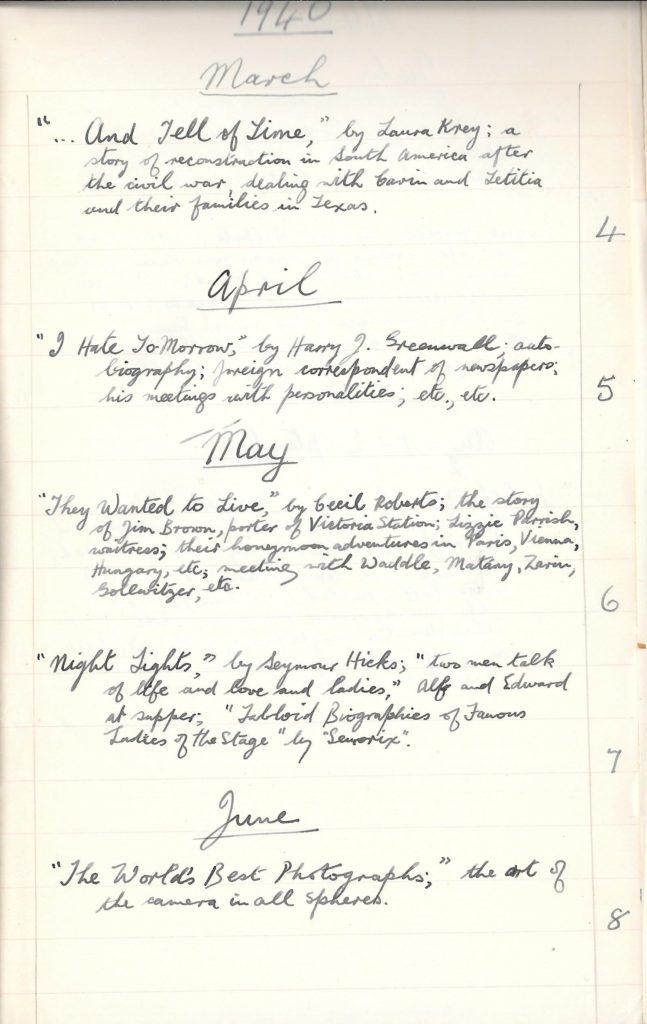 1940
March
"... And Tell of Time," by Laura Krey; a
story of reconstruction in South America after
the civil war, dealing with Cavin and Letitia
and their families in Texas.
4
April
"I Hate To-Morrow," by Harry J. Greenwall; auto-
biography; foreign correspondent of newspapers;
his meetings with personalities; etc., etc.
5
May
"They Wanted to Live," by Cecil Roberts; the story
of Jim Brown, porter of Victoria Station; Lizzie Parrish,
waitress; their honeymoon adventures in Paris, Vienna,
Hungary, etc; meeting with Waddle, Matany, Zerin,
Gollwitzer, etc.
6
"Night Lights," by Seymour Hicks; "two men talk
of life and love and ladies," Alf and Edward
at supper; "Tabloid Biographies of Famous
Ladies of the Stage" by
7
June
"The World's Best Photographs;" the art of
the camera in all spheres.
8